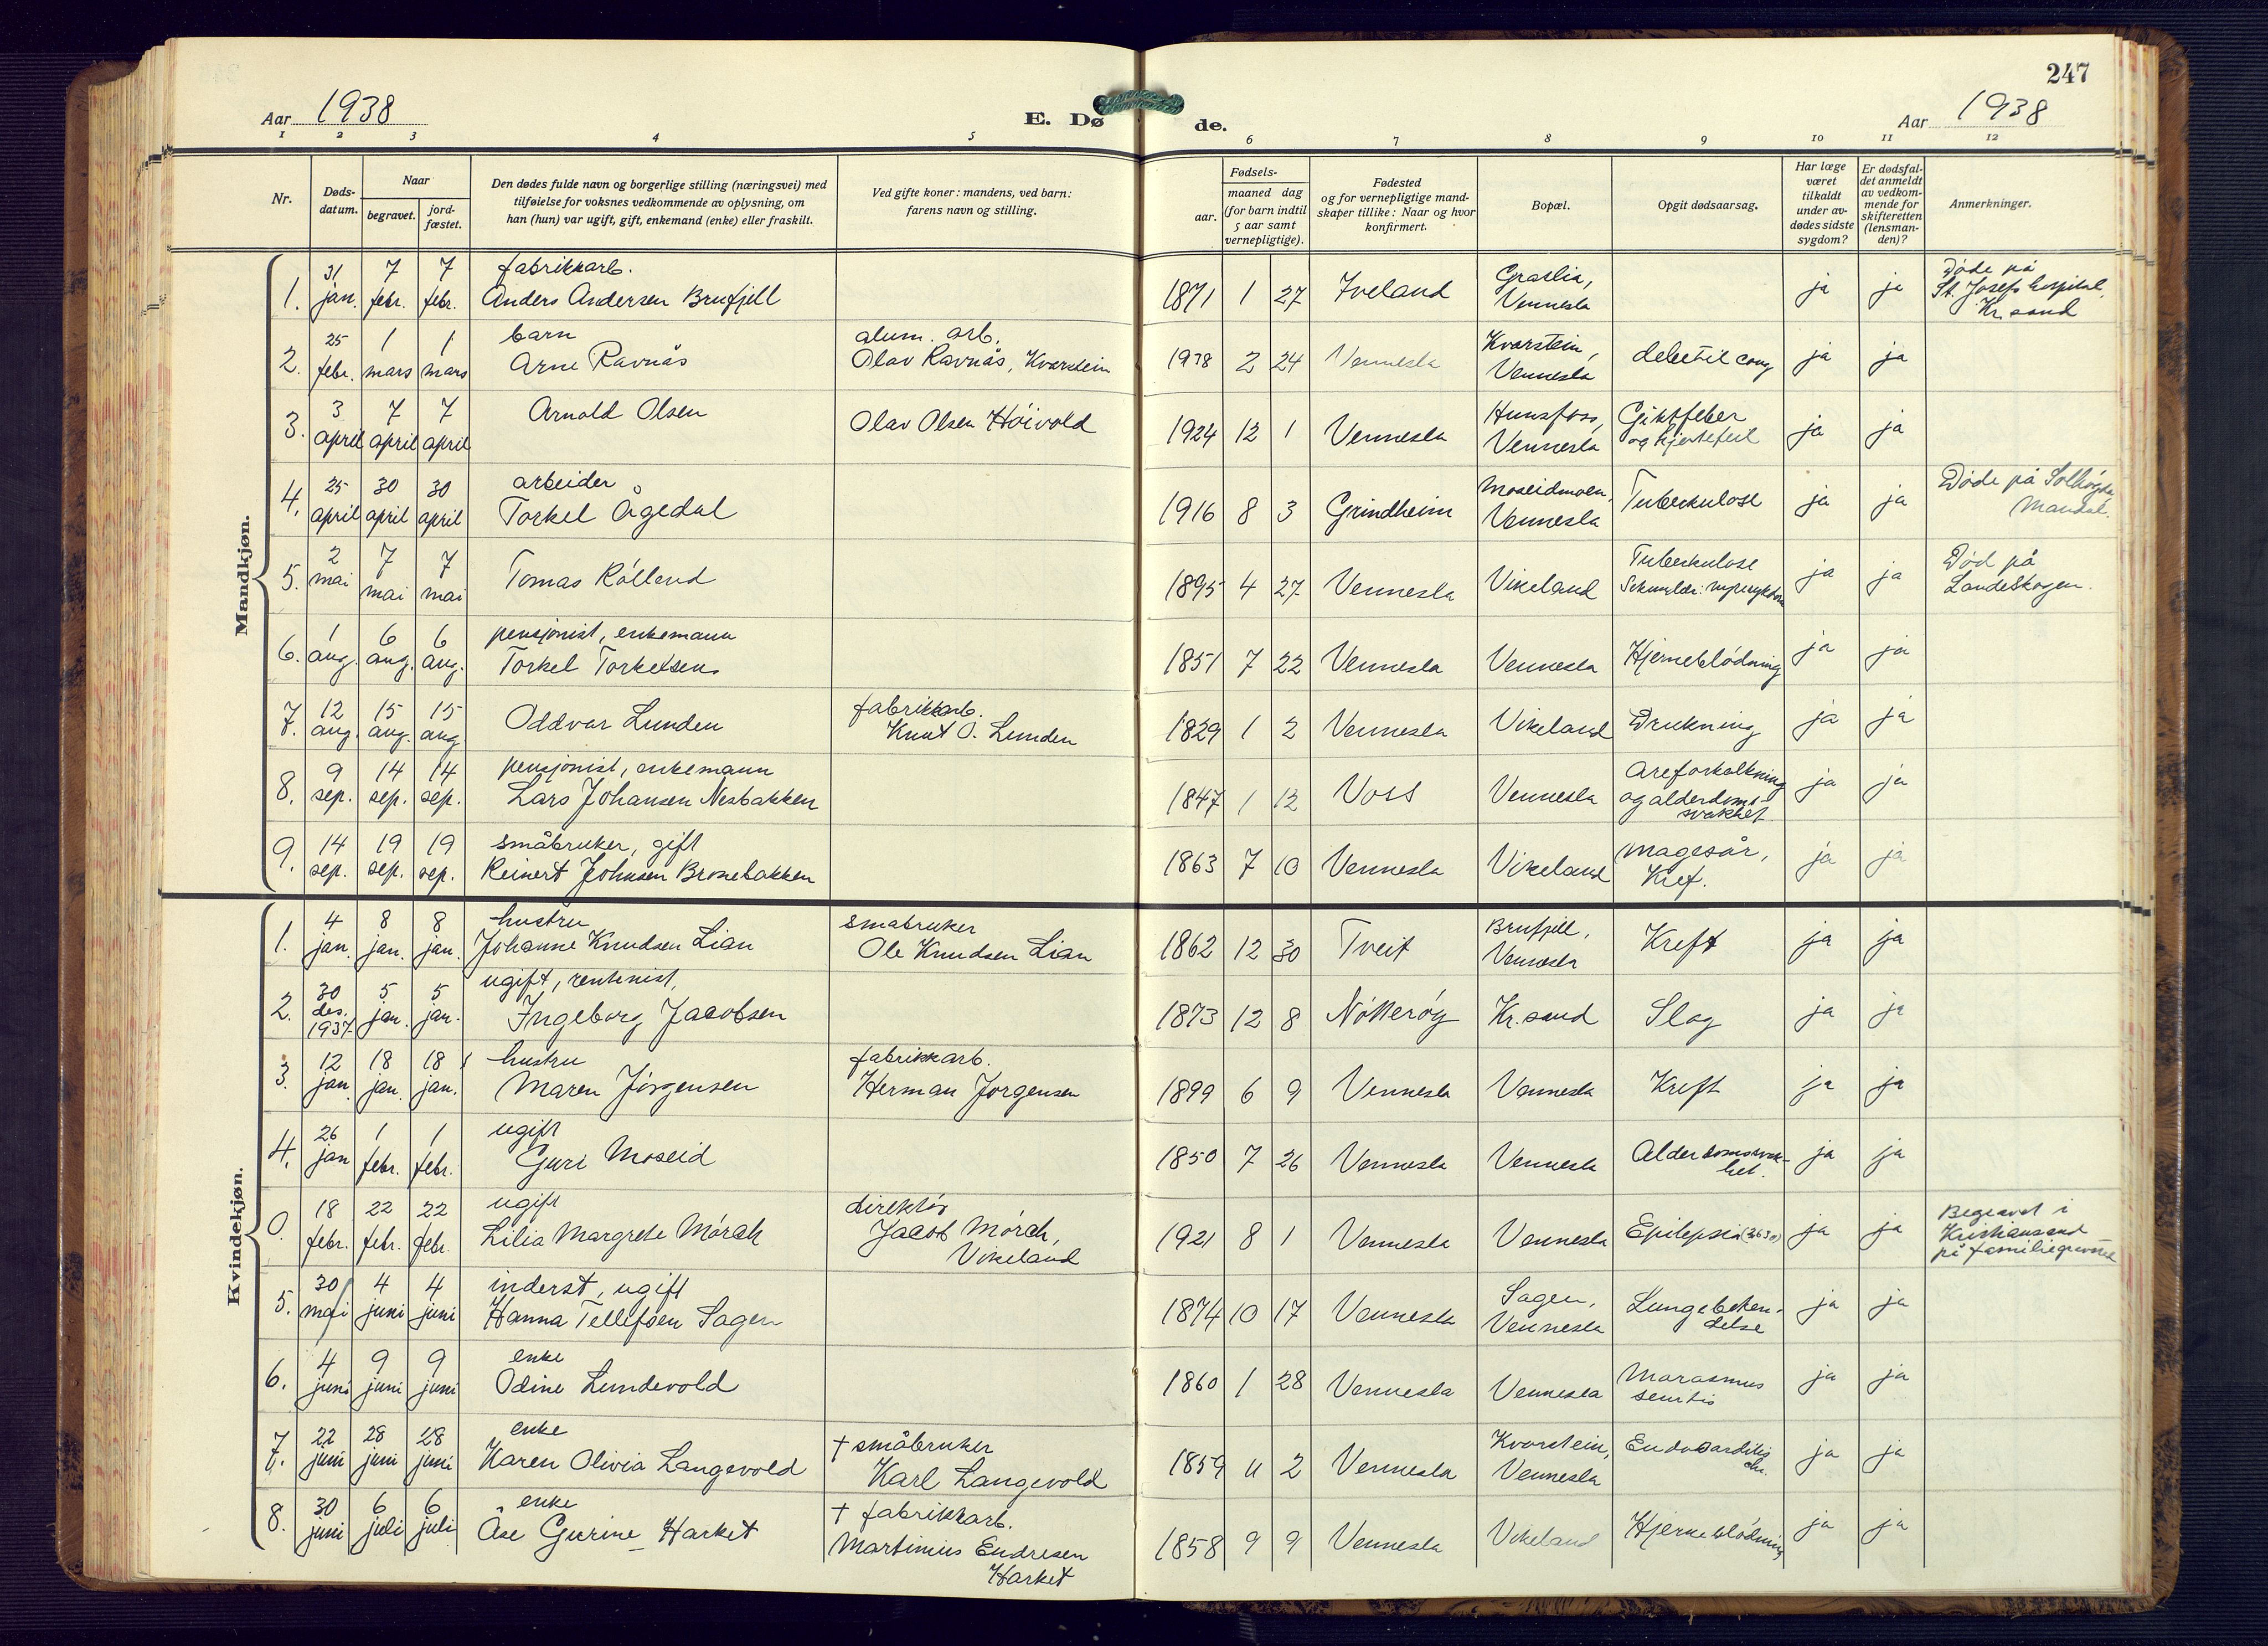 247
Aar 1938
E. Dø
de.
Aar 1938
1 2 3 4 5 6 7 8 9 10 11 12
Nr.
Døds-
datum.
Naar
begravet.
jord-
fæstet.
Den dødes fulde navn og borgerlige stilling (næringsvei) med
tilføielse for voksnes vedkommende av oplysning, om
han (hun) var ugift, gift, enkemand (enke) eller fraskilt.
Ved gifte koner: mandens, ved barn:
farens navn og stilling.
Fødsels-
aar.
maaned dag
(for barn indtil
5 aar samt
vernepligtige).
Fødested
og for vernepligtige mand-
skaper tillike: Naar og hvor
konfirmert.
Bopæl.
Opgit dødsaarsag.
Har læge
været
tilkaldt
under av-
dødes sidste
sygdom?
Er dødsfal-
det anmeldt
av vedkom-
mende for
skifteretten
(lensman-
den)?
Anmerkninger.
Mandkjøn.
1. 31 jan. 7 febr. 7 febr. fabrikkarb. Anders Andersen Brufjell 1871 1 27 Iveland Graslia, Vennesla ja ja Døde på St. Josefs hospital, Kr.sand
2. 25 febr. 1 mars 1 mars barn Arne Ravnås alum. arb. Olav Ravnås, Kvarstein 1938 2 24 Vennesla Kvarstein, Vennesla debetil cong ja ja
3. 3 april 7 april 7 april Arnold Olsen Olav Olsen Høivold 1924 12 1 Vennesla Hunsfoss, Vennesla Giktfeber og hjertefeil ja ja
4. 25 april 30 april 30 april arbeider Torkel Ågedal 1916 8 3 Grindheim Moseidmoen, Vennesla Tuberkulose ja ja Døde på Solhøgda Mandal.
5. 2 mai 7 mai 7 mai Tomas Rølland 1895 4 27 Vennesla Vikeland Tuberkulose ja ja Død på Landeskogen.
6. 1 aug. 6 aug. 6 aug. pensjonist, enkemann Torkel Torkelsen 1851 7 22 Vennesla Vennesla Hjerneblødning ja ja
7. 12 aug. 15 aug. 15 aug. Oddvar Lunden fabrikkarb. Knut O. Lunden 1829 1 2 Vennesla Vikeland Drukning ja ja
8. 9 sep. 14 sep. 14 sep. pensjonist, enkemann Lars Johansen Nesbakken 1847 1 12 Voss Vennesla Areforkalkning og alderdoms- svakhet ja ja
9. 14 sep. 19 sep. 19 sep. småbruker, gift Reinert Johnsen Bronebakken 1863 7 10 Vennesla Vikeland Magesår, Kref. ja ja
Kvindekjøn.
1. 4 jan. 8 jan. 8 jan. hustru Johanne Knudsen Lian småbruker Ole Knudsen Lian 1862 12 30 Tveit Brufjell, Vennesla Kreft ja ja
2. 30 des. 1937 5 jan. 5 jan. ugift, rentenist, Ingeborg Jacobsen 1873 12 8 Nøtterøy Kr.sand Slag ja ja
3. 12 jan. 18 jan. 18 jan. hustru Maren Jørgensen fabrikkarb. Herman Jørgensen 1899 6 9 Vennesla Vennesla Kreft ja ja
4. 26 jan 1 febr. 1 febr. ugift Guri Moseid 1850 7 26 Vennesla Vennesla Alderdomsvak- het. ja ja
0. 18 febr. 22 febr. 22 febr. ugift Lilia Margrete Mørch direktør Jacob Mørch, Vikeland 1921 8 1 Vennesla Vennesla Epilepsia ja ja Begravet i Kristiansand på familiegravsted
5. 30 mai 4 juni 4 juni inderst, ugift Hanna Tellefsen Sagen 1874 10 17 Vennesla Sagen, Vennesla Lungebeten- delse ja ja
6. 4 juni 9 juni 9 juni enke Odine Lundevold 1860 1 28 Vennesla Vennesla Marasmus senilis ja ja
7. 22 juni 28 juni 28 juni enke Karen Olivia Langevold † småbruker Karl Langevold 1859 11 2 Vennesla Kvarstein, Vennesla Endocarditis chr. ja ja
8. 30 juni 6 juli 6 juli enke Åse Gurine Harket † fabrikkarb. Martinius Endresen Harket 1858 9 9 Vennesla Vikeland Hjerneblødning ja ja